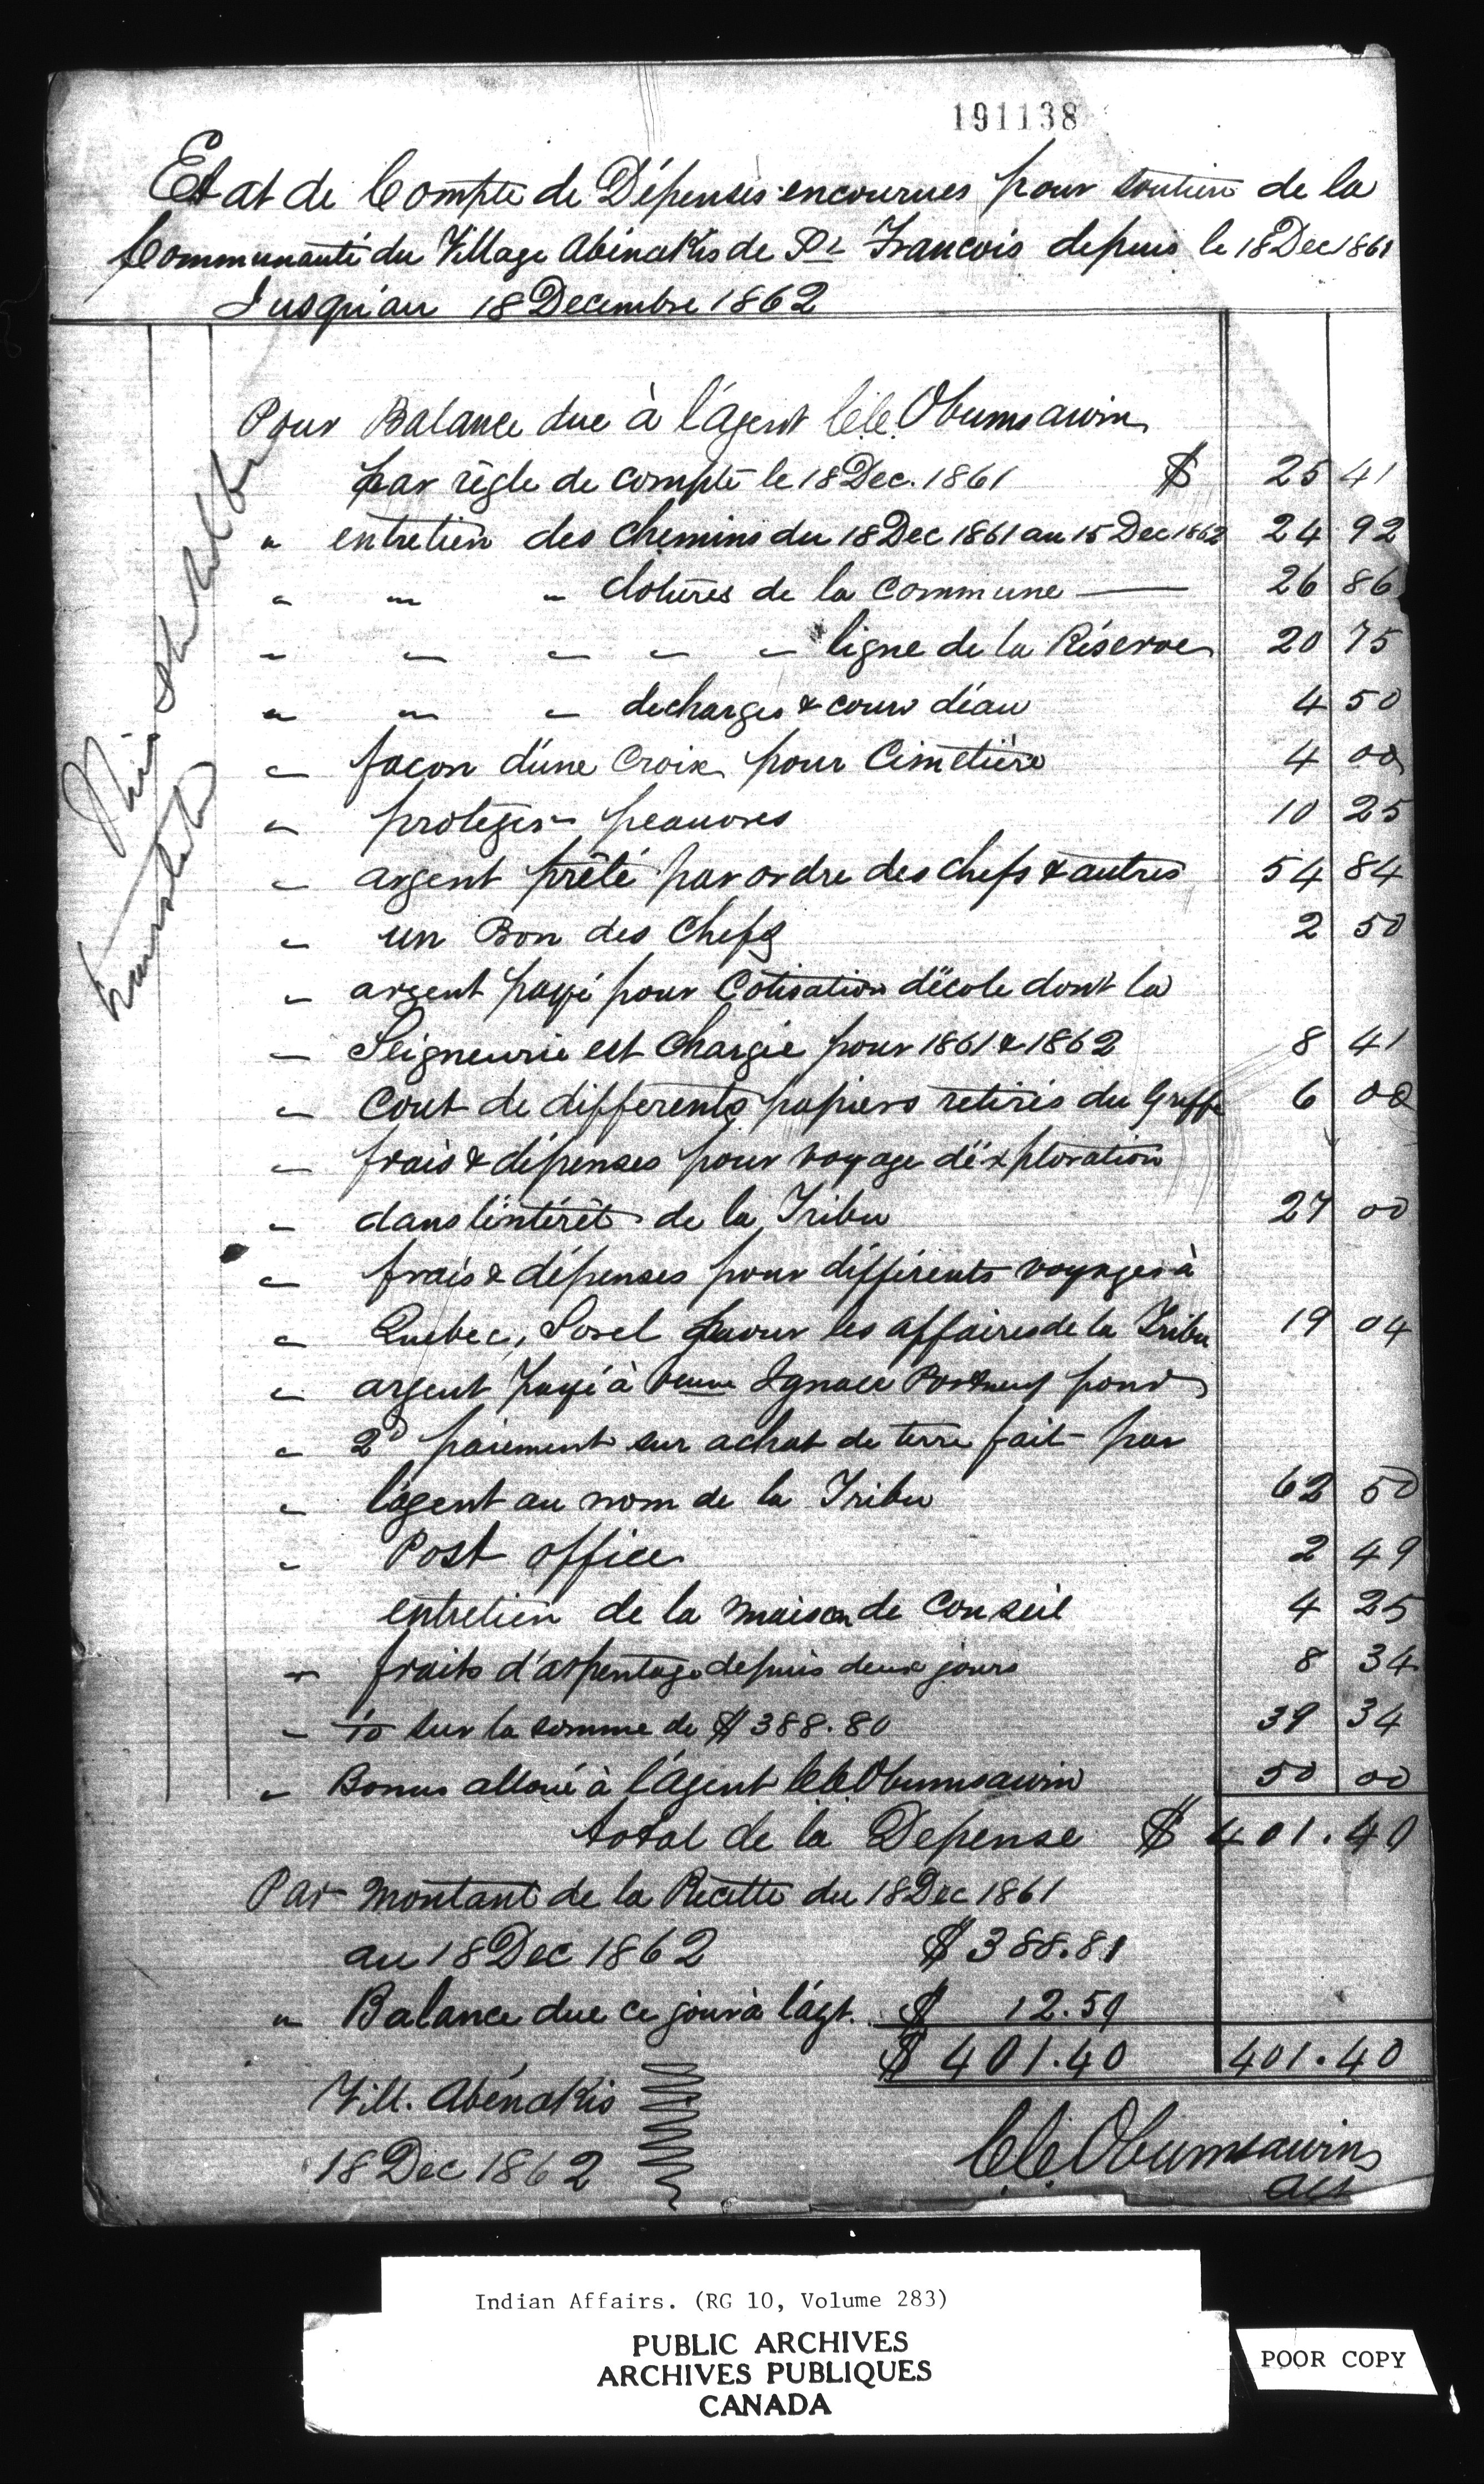 191138
Etat de Compte de Dépenses encourues pour soutien de la
Communauté du Village Abénakis de St Francois depuis le 18 Dec 1861
Jusqu'au 18 Decembre 1862
Pour Balance due à l'agent Obumsawin
par règle de compte le 18 Dec. 1861 $ 25 41
" entretien des chemins du 18 Dec 1861 au 15 Dec 1862 24 92
" " " clotures de la commune — 26 86
" " " " " ligne de la Réserve 20 75
" " " decharges & cours d'eau 4 50
" façon d'une Croix pour Cimetière 4 00
" proteger peauvres 10 25
" argent prêté par ordre des chefs & autres 54 84
" un Bon des Chefs 2 50
" argent payé pour Cotisation d'école dont la
" Seigneurie est chargée pour 1861 & 1862 8 41
" Cout de differents papiers retirés du Greffe 6 00
" frais & dépenses pour voyage d'éxploration
" dans l'intérêt de la Tribu 27 00
" frais & dépenses pour différents voyages à
" Quebec, Sorel pour les affaires de la Tribu 19 04
" argent payé à veuve Ignace Portneuf pour
" 2d paiement sur achat de terre fait par
" l'agent au nom de la Tribu 62 50
" Post office 2 49
entretien de la maison de Conseil 4 25
" fraits d'arpentage depuis deux jours 8 34
" 10 sur la somme de $ 388.80 39 34
" Bonus alloué à l'Agent Obumsawin 50 00
total de la Depense $ 401.40
Par montant de la Recette du 18 Dec 1861
au 18 Dec 1862 $ 388.81
" Balance due ce jour à l'agt. $ 12.59
$ 401.40 401.40
Vill. Abénakis
18 Dec 1862
Obumsawin
Agt
Indian Affairs. (RG 10, Volume 283)
PUBLIC ARCHIVES
ARCHIVES PUBLIQUES
CANADA
POOR COPY